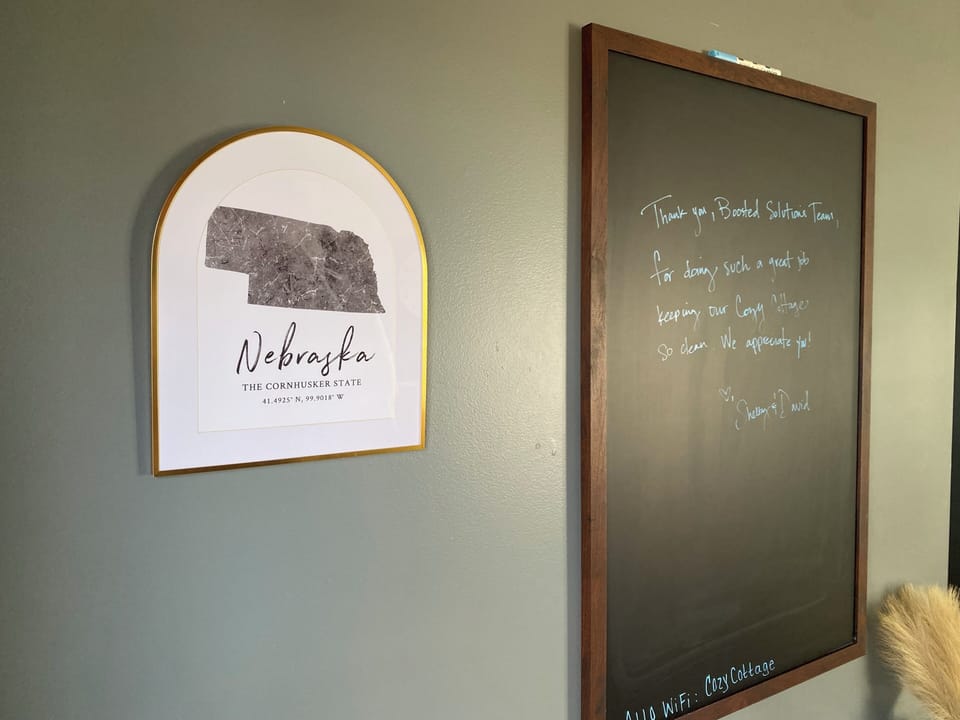 Nebraska
THE CORNHUSKER STATE
41.4925° N, 99.9018° W
Thank you, Boosted Solutions Team,
for doing such a great job
keeping our Cozy Cottage
so clean. We appreciate you!
♡, Shelby & David
ALLO WiFi: Cozy Cottage